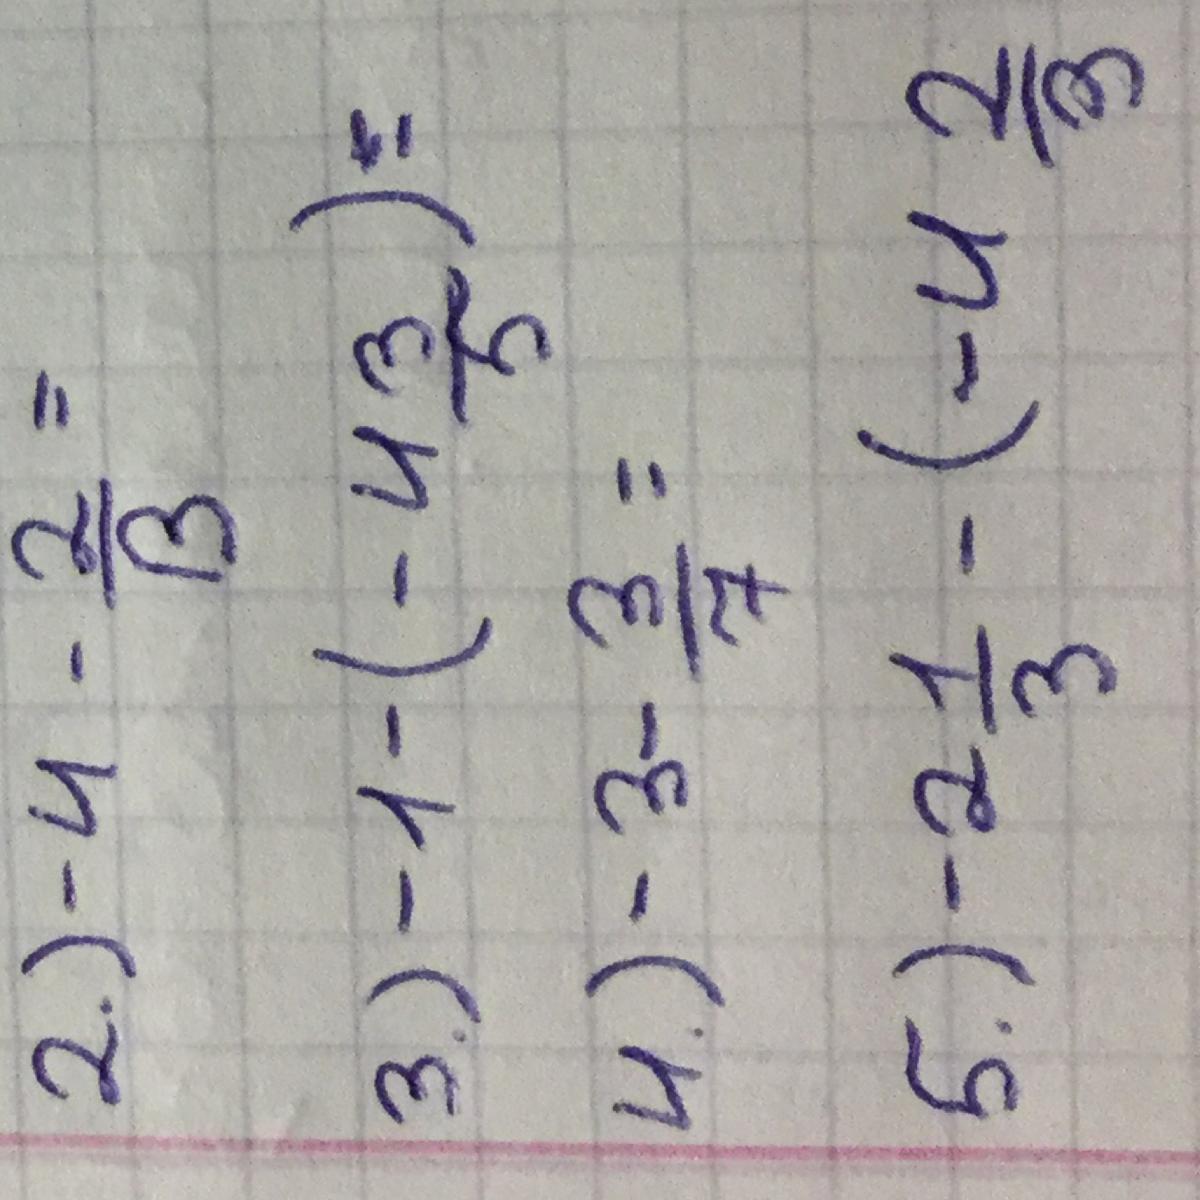 2.) -4 - 2/3 =
3.) -1 - (-4 3/5) =
4.) -3 - 3/7 =
5.) -2 1/3 - (-4 2/3